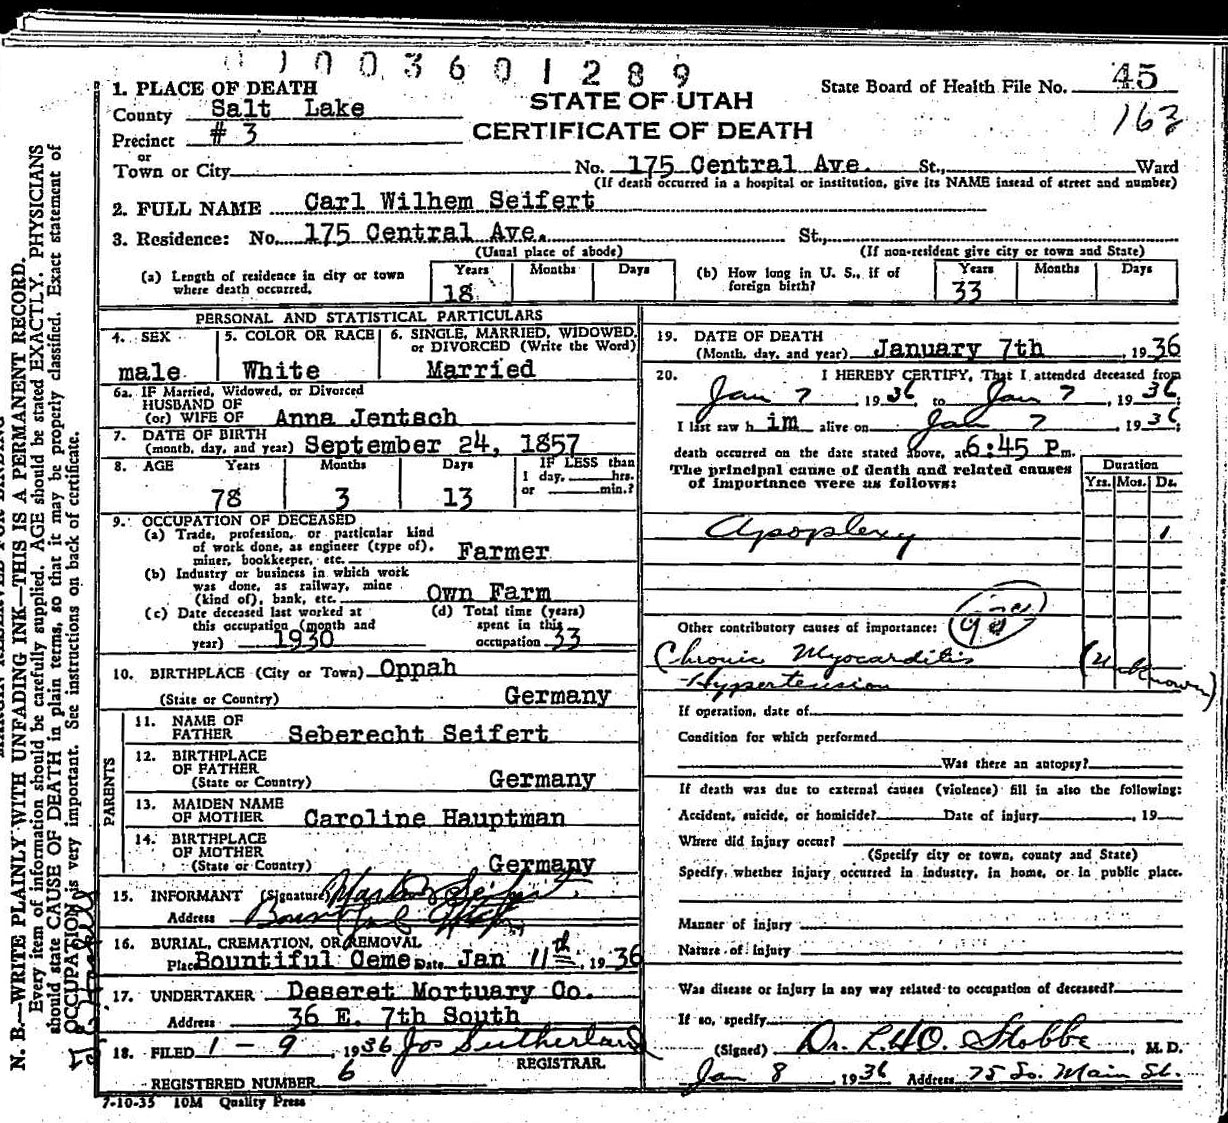 1003601289
1. PLACE OF DEATH
County Salt Lake
Precinct # 3
or
Town or City
STATE OF UTAH
CERTIFICATE OF DEATH
State Board of Health File No. 45
163
No. 175 Central Ave. St., Ward
(If death occurred in a hospital or institution, give its NAME insead of street and number)
2. FULL NAME Carl Wilhem Seifert
3. Residence: No. 175 Central Ave. St.,
(Usual place of abode) (If non-resident give city or town and State)
(a) Length of residence in city or town where death occurred. Years 18 Months Days
(b) How long in U. S., if of foreign birth? Years 33 Months Days
PERSONAL AND STATISTICAL PARTICULARS
4. SEX male
5. COLOR OR RACE White
6. SINGLE, MARRIED, WIDOWED, or DIVORCED (Write the Word) Married
6a. IF Married, Widowed, or Divorced
HUSBAND OF
(or) WIFE OF Anna Jentsch
7. DATE OF BIRTH
(month, day, and year) September 24, 1857
8. AGE Years 78 Months 3 Days 13 IF LESS than 1 day, hrs. or min.?
9. OCCUPATION OF DECEASED
(a) Trade, profession, or particular kind
of work done, as engineer (type of),
miner, bookkeeper, etc. Farmer
(b) Industry or business in which work
was done, as railway, mine
(kind of), bank, etc. Own Farm
(c) Date deceased last worked at
this occupation (month and
year) 1930
(d) Total time (years)
spent in this
occupation 33
10. BIRTHPLACE (City or Town) Oppah
(State or Country) Germany
PARENTS
11. NAME OF
FATHER Seberecht Seifert
12. BIRTHPLACE
OF FATHER
(State or Country) Germany
13. MAIDEN NAME
OF MOTHER Caroline Hauptman
14. BIRTHPLACE
OF MOTHER
(State or Country) Germany
15. INFORMANT (Signature)
Address
16. BURIAL, CREMATION, OR REMOVAL
Place Bountiful Ceme Date Jan 11th, 1936
17. UNDERTAKER Deseret Mortuary Co.
Address 36 E. 7th South
18. FILED 1 - 9, 1936 Jos Sutherland
REGISTRAR.
REGISTERED NUMBER 6
7-10-35 10M Quality Press
19. DATE OF DEATH
(Month, day, and year) January 7th, 1936
20. I HEREBY CERTIFY, That I attended deceased from
Jan 7, 1936, to Jan 7, 1936;
I last saw h im alive on Jan 7, 1936;
death occurred on the date stated above, at 6:45 P.m.
The principal cause of death and related causes
of importance were as follows:
Duration
Yrs. Mos. Ds.
Apoplexy 1
Other contributory causes of importance:
Chronic Myocarditis (Unknown)
Hypertension
If operation, date of
Condition for which performed
Was there an autopsy?
If death was due to external causes (violence) fill in also the following:
Accident, suicide, or homicide? Date of injury , 19
Where did injury occur?
(Specify city or town, county and State)
Specify whether injury occurred in industry, in home, or in public place.
Manner of injury
Nature of injury
Was disease or injury in any way related to occupation of deceased?
If so, specify
(Signed) Dr. L.H.O. Stobbe, M. D.
Jan 8 1936 Address 75 So. Main St.
N. B.—WRITE PLAINLY WITH UNFADING INK—THIS IS A PERMANENT RECORD.
Every item of information should be carefully supplied. AGE should be stated EXACTLY. PHYSICIANS
should state CAUSE OF DEATH in plain terms, so that it may be properly classified. Exact statement of
OCCUPATION is very important. See instructions on back of certificate.